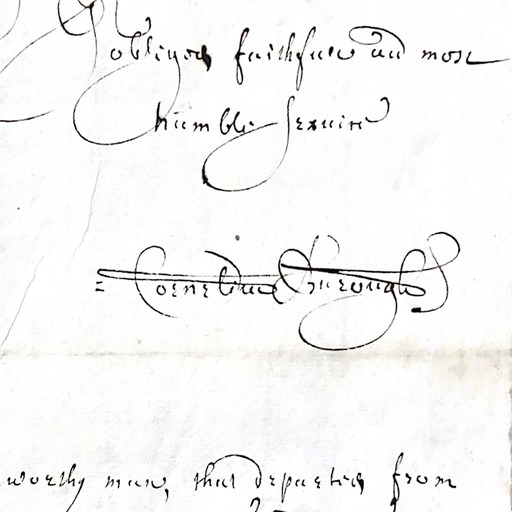 obliged faithfull and most
humble Servant
= Cornelius Burough
worthy man, that departed from